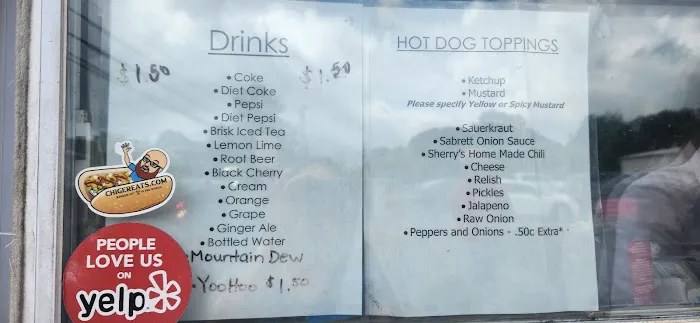 Drinks
$1.50 $1.50
• Coke
• Diet Coke
• Pepsi
• Diet Pepsi
• Brisk Iced Tea
• Lemon Lime
• Root Beer
• Black Cherry
• Cream
• Orange
• Grape
• Ginger Ale
• Bottled Water
• Mountain Dew
• YooHoo $1.50
HOT DOG TOPPINGS
• Ketchup
• Mustard
Please specify Yellow or Spicy Mustard
• Sauerkraut
• Sabrett Onion Sauce
• Sherry's Home Made Chili
• Cheese
• Relish
• Pickles
• Jalapeno
• Raw Onion
• Peppers and Onions - .50c Extra*
CHIGEREATS.COM
PEOPLE
LOVE US
ON
yelp